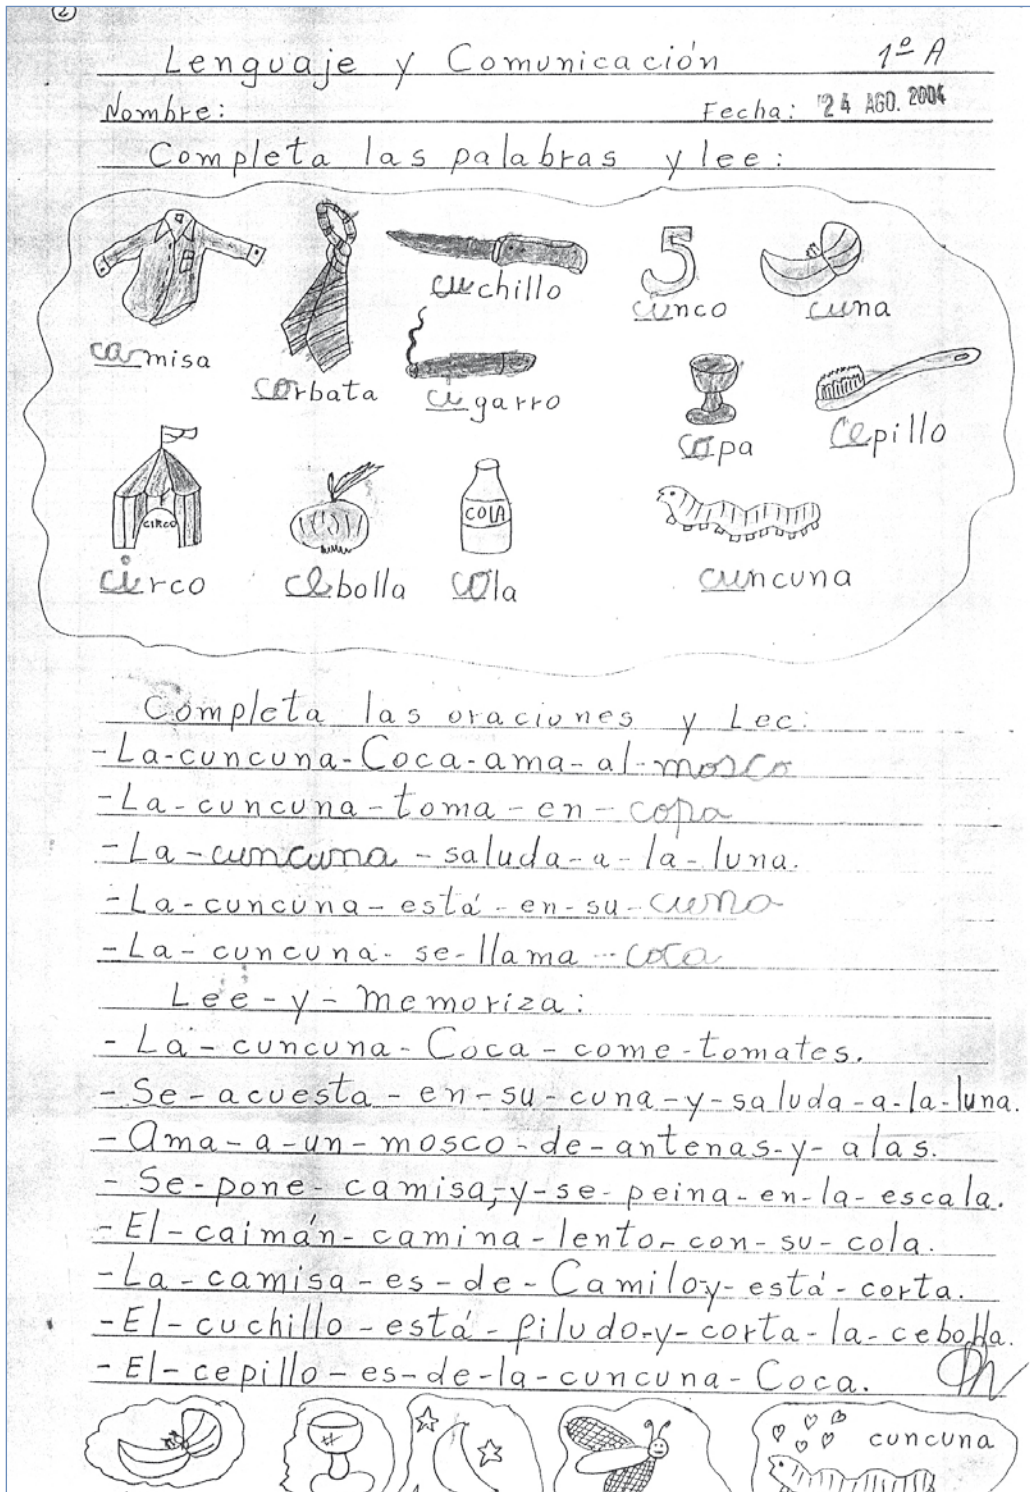 2
Lenguaje y Comunicación 1º A
Nombre: Fecha: 24 AGO. 2004
Completa las palabras y lee:
cuchillo
cinco cuna
camisa
corbata cigarro
copa cepillo
CIRCO
COLA
circo cebolla cola cuncuna
Completa las oraciones y Lee:
-La-cuncuna-Coca-ama-al-mosco
-La-cuncuna-toma-en-copa
-La-cuncuna-saluda-a-la-luna.
-La-cuncuna-está-en-su-cuna
-La-cuncuna-se-llama-coca
Lee-y-memoriza:
-La-cuncuna-Coca-come-tomates.
-Se-acuesta-en-su-cuna-y-saluda-a-la-luna.
-Ama-a-un-mosco-de-antenas-y-alas.
-Se-pone-camisa,-y-se-peina-en-la-escala.
-El-caimán-camina-lento-con-su-cola.
-La-camisa-es-de-Camilo-y-está-corta.
-El-cuchillo-está-filudo-y-corta-la-cebolla.
-El-cepillo-es-de-la-cuncuna-Coca.
cuncuna